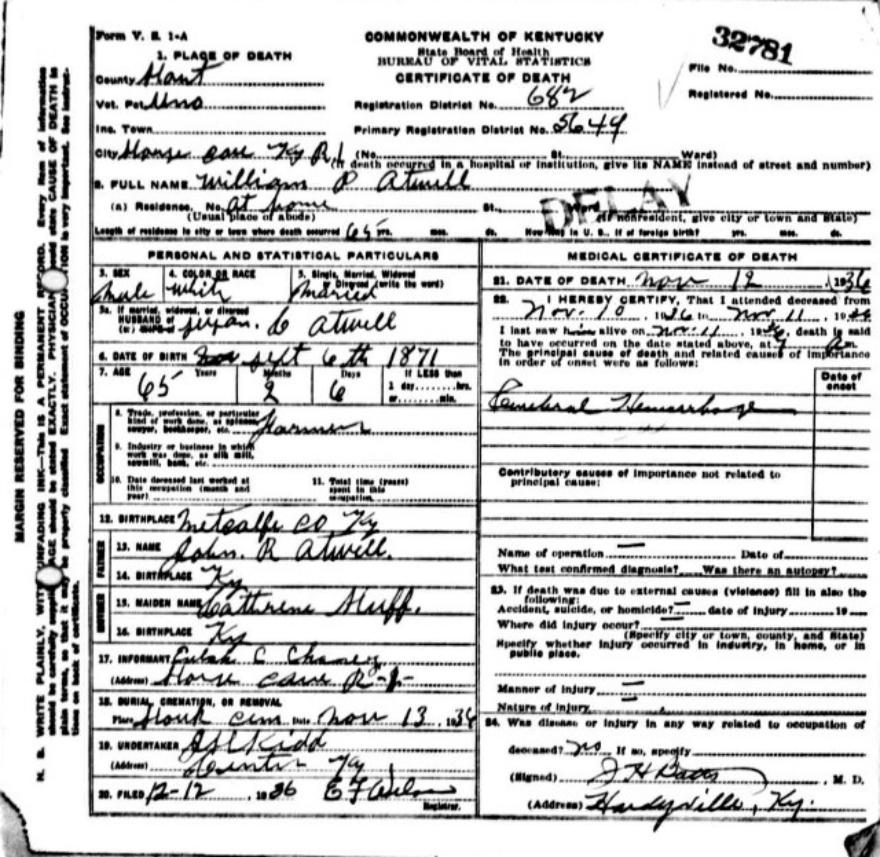 Form V. S. 1-A
COMMONWEALTH OF KENTUCKY
State Board of Health
BUREAU OF VITAL STATISTICS
CERTIFICATE OF DEATH
32781
File No.
Registered No.
1. PLACE OF DEATH
County Hart
Vot. Pct Uno
Inc. Town
City Horse Cave Ky R.1 (No. St. Ward)
Registration District No. 682
Primary Registration District No. 5649
(If death occurred in a hospital or institution, give its NAME instead of street and number)
2. FULL NAME William P Atwell
(a) Residence. No. At home St. Ward
(Usual place of abode)
(If nonresident, give city or town and State)
DELAY
Length of residence in city or town where death occurred 65 yrs. mos. ds. How long in U. S., if of foreign birth? yrs. mos. ds.
PERSONAL AND STATISTICAL PARTICULARS
3. SEX male
4. COLOR OR RACE White
5. Single, Married, Widowed or Divorced (write the word) Married
5a. If married, widowed, or divorced
HUSBAND of
(or) WIFE of C Atwell
6. DATE OF BIRTH Sept 6th 1871
7. AGE 65 Years 2 Months 6 Days If LESS than 1 day hrs. or min.
OCCUPATION
8. Trade, profession, or particular kind of work done, as spinner, sawyer, bookkeeper, etc. Farmer
9. Industry or business in which work was done, as silk mill, sawmill, bank, etc.
10. Date deceased last worked at this occupation (month and year)
11. Total time (years) spent in this occupation
12. BIRTHPLACE Metcalfe Co Ky
FATHER
13. NAME John. R Atwell.
14. BIRTHPLACE Ky
MOTHER
15. MAIDEN NAME Cathrene Huff.
16. BIRTHPLACE Ky
17. INFORMANT C Chaney
(Address) Horse Cave R-1-
18. BURIAL, CREMATION, OR REMOVAL
Place cem Date Nov 13, 1936
19. UNDERTAKER Kidd
(Address) Center Ky
20. FILED 12-12, 1936 E F
Registrar.
MEDICAL CERTIFICATE OF DEATH
21. DATE OF DEATH Nov 12 1936
22. I HEREBY CERTIFY, That I attended deceased from
Nov. 10, 1936 to Nov. 11, 1936
I last saw him alive on Nov. 11 1936, death is said
to have occurred on the date stated above, at am.
The principal cause of death and related causes of importance
in order of onset were as follows:
Date of onset
Cerebral Hemorrhage
Contributory causes of importance not related to
principal cause:
Name of operation — Date of
What test confirmed diagnosis? Was there an autopsy?
23. If death was due to external causes (violence) fill in also the
following:
Accident, suicide, or homicide? — date of injury 19
Where did injury occur? —
(Specify city or town, county, and State)
Specify whether injury occurred in industry, in home, or in
public place.
Manner of injury —
Nature of injury —
24. Was disease or injury in any way related to occupation of
deceased? no If so, specify
(Signed) J H, M. D.
(Address) Hardyville, Ky.
MARGIN RESERVED FOR BINDING
N. B. WRITE PLAINLY, WITH UNFADING INK—This is A PERMANENT RECORD. Every item of information
should be carefully supplied. AGE should be stated EXACTLY. PHYSICIANS should state CAUSE OF DEATH in
plain terms, so that it may be properly classified. Exact statement of OCCUPATION is very important. See instruc-
tions on back of certificate.